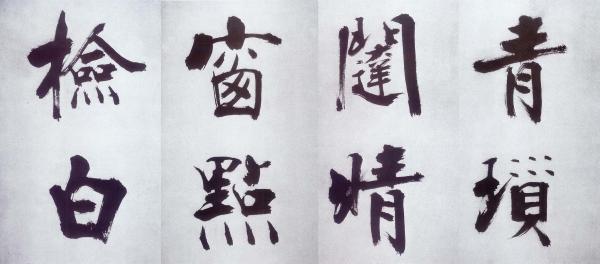 青瑣
闥晴
窗點
檢白